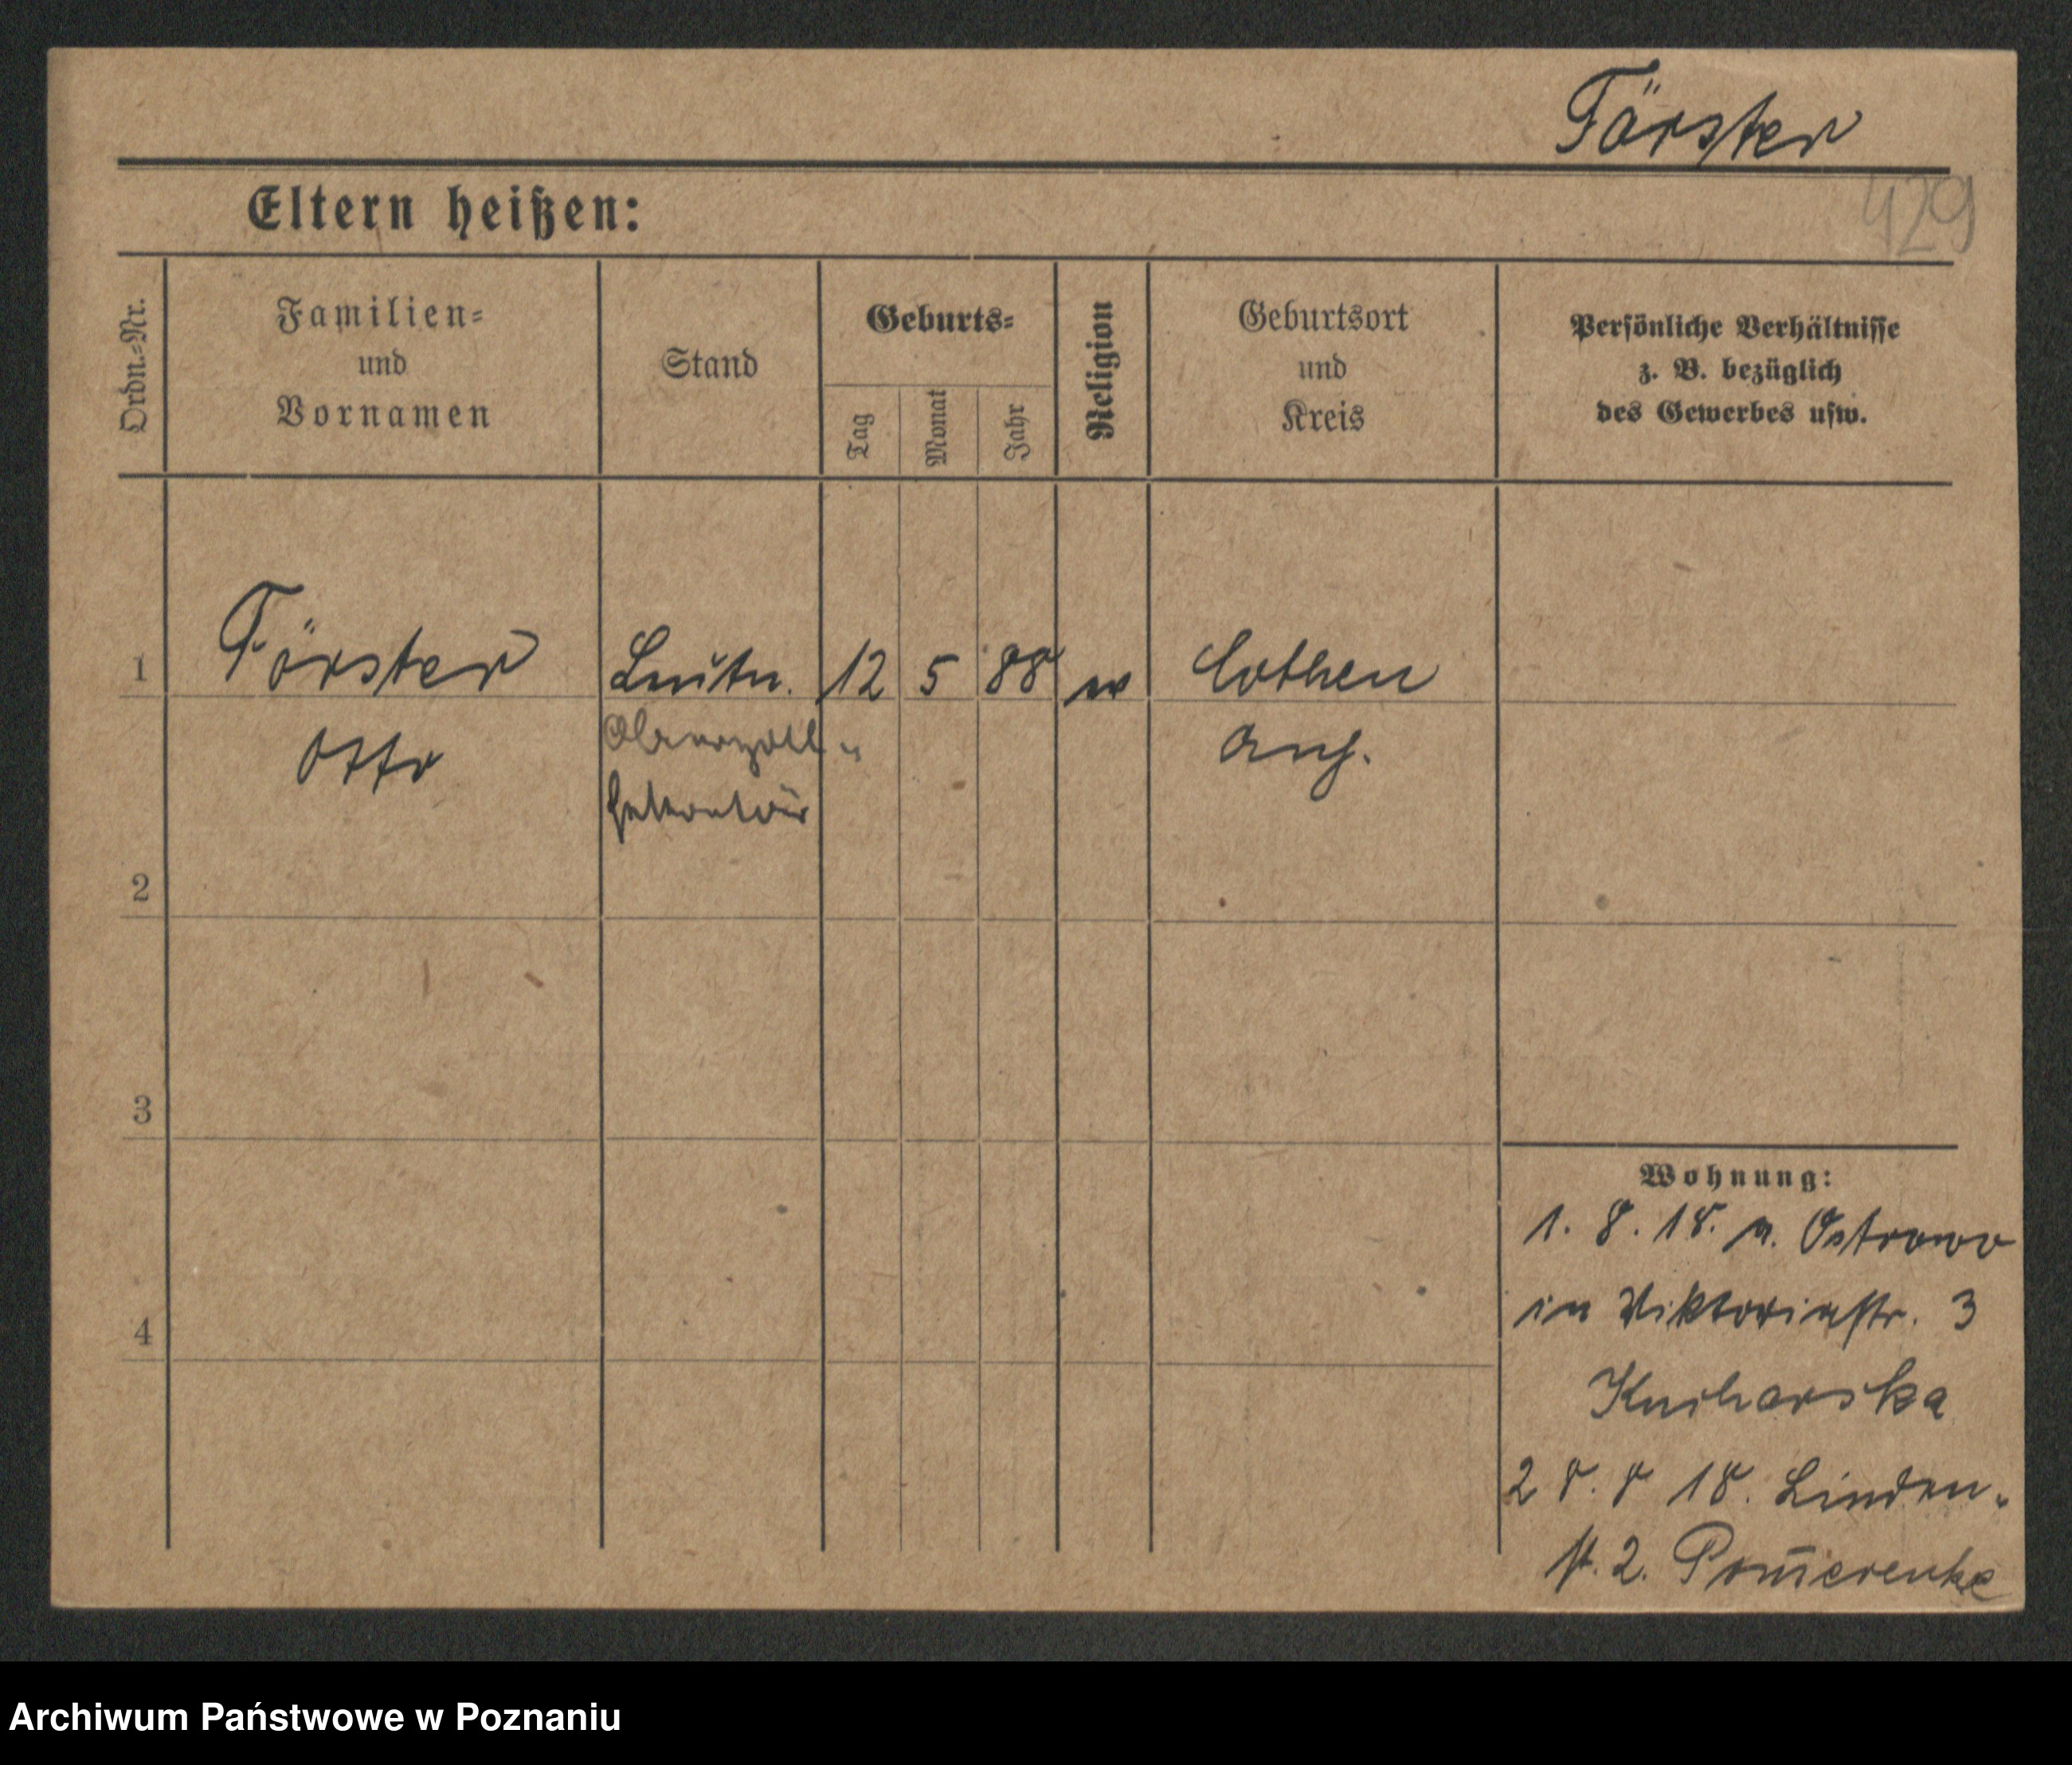 Förster
429
Eltern heißen:
Ordn.-Nr.
Familien-
und
Vornamen
Stand
Geburts-
Tag
Monat
Jahr
Religion
Geburtsort
und
Kreis
Persönliche Verhältnisse
z. B. bezüglich
des Gewerbes usw.
1
Förster
Leutn.
12
5
88
Cothen
Otto
Oberzoll-
Anh.
Sekretär
2
3
4
Wohnung:
1. 8. 18. v. Ostrowo
in Viktoriastr. 3
28. 8 18. Linden-
st. 2. Pom̅erenke
Archiwum Państwowe w Poznaniu